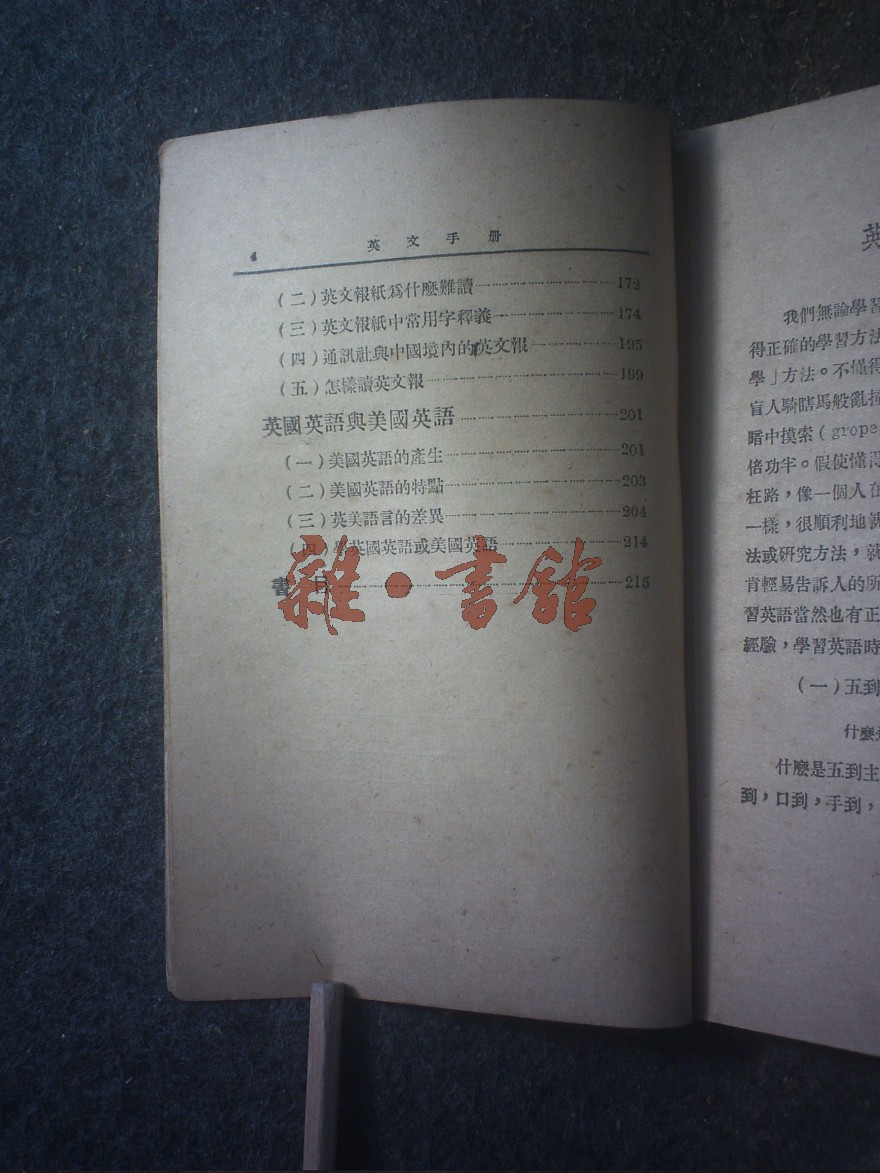 4 英文手册
(二)英文報紙爲什麽難讀 172
(三)英文報紙中常用字釋義 174
(四)通訊社與中國境內的英文報 195
(五)怎樣讀英文報 199
英國英語與美國英語 201
(一)美國英語的產生 201
(二)美國英語的特點 203
(三)英美語言的差異 204
(四)學英國英語或美國英語 214
書目 215
雜·書館
英
我們無論學習
得正確的學習方法
學」方法。不懂得
盲人騎瞎馬般亂撞
暗中摸索(grope
倍功半。假使懂得
枉路,像一個人在
一樣,很順利地就
法或研究方法,就
肯輕易告訴人的所
習英語當然也有正
經驗,學習英語時
(一)五到
什麽是
什麽是五到主
到,口到,手到,